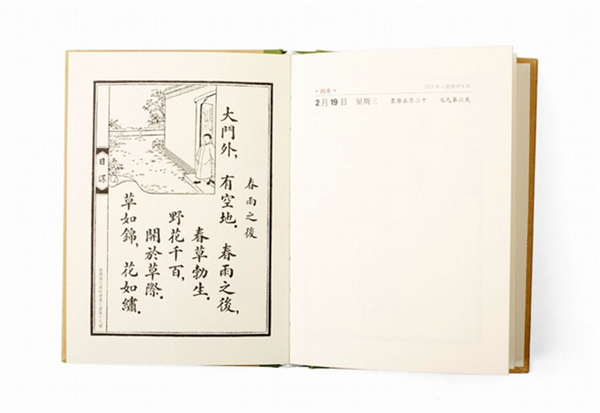 春雨之後
大門外，有空地．春雨之後，
春草勃生．
野花千百，
開於草際．
草如錦，花如繡．
日課
·雨水·
2月19日 星期三 農曆正月二十 七九第六天